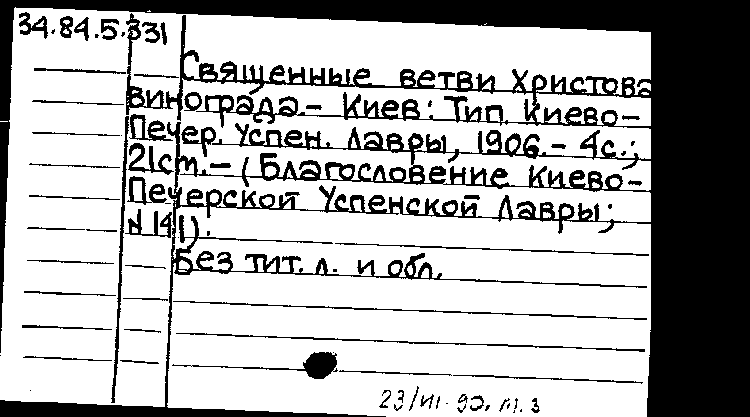 34.84.5.331
Священные ветви Христова
винограда.- Киев: Тип. Киево-
Печер. Успен. Лавры, 1906.- 4с.;
21cm.- (Благословение Киево-
Печерской Успенской Лавры;
N 141).
Без тит. л. и обл.